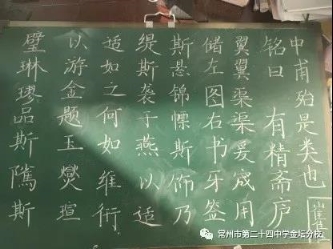 中甫殆是类也
铭曰 有精斋庐
翼翼渠渠爰宬用
储左图右书牙签
斯悬锦幖斯饰乃
缇斯袭于燕以适
适如之何如维衍
以游金题玉燮瑄
璧琳璆品斯骘斯
常州市第二十四中学金坛分校